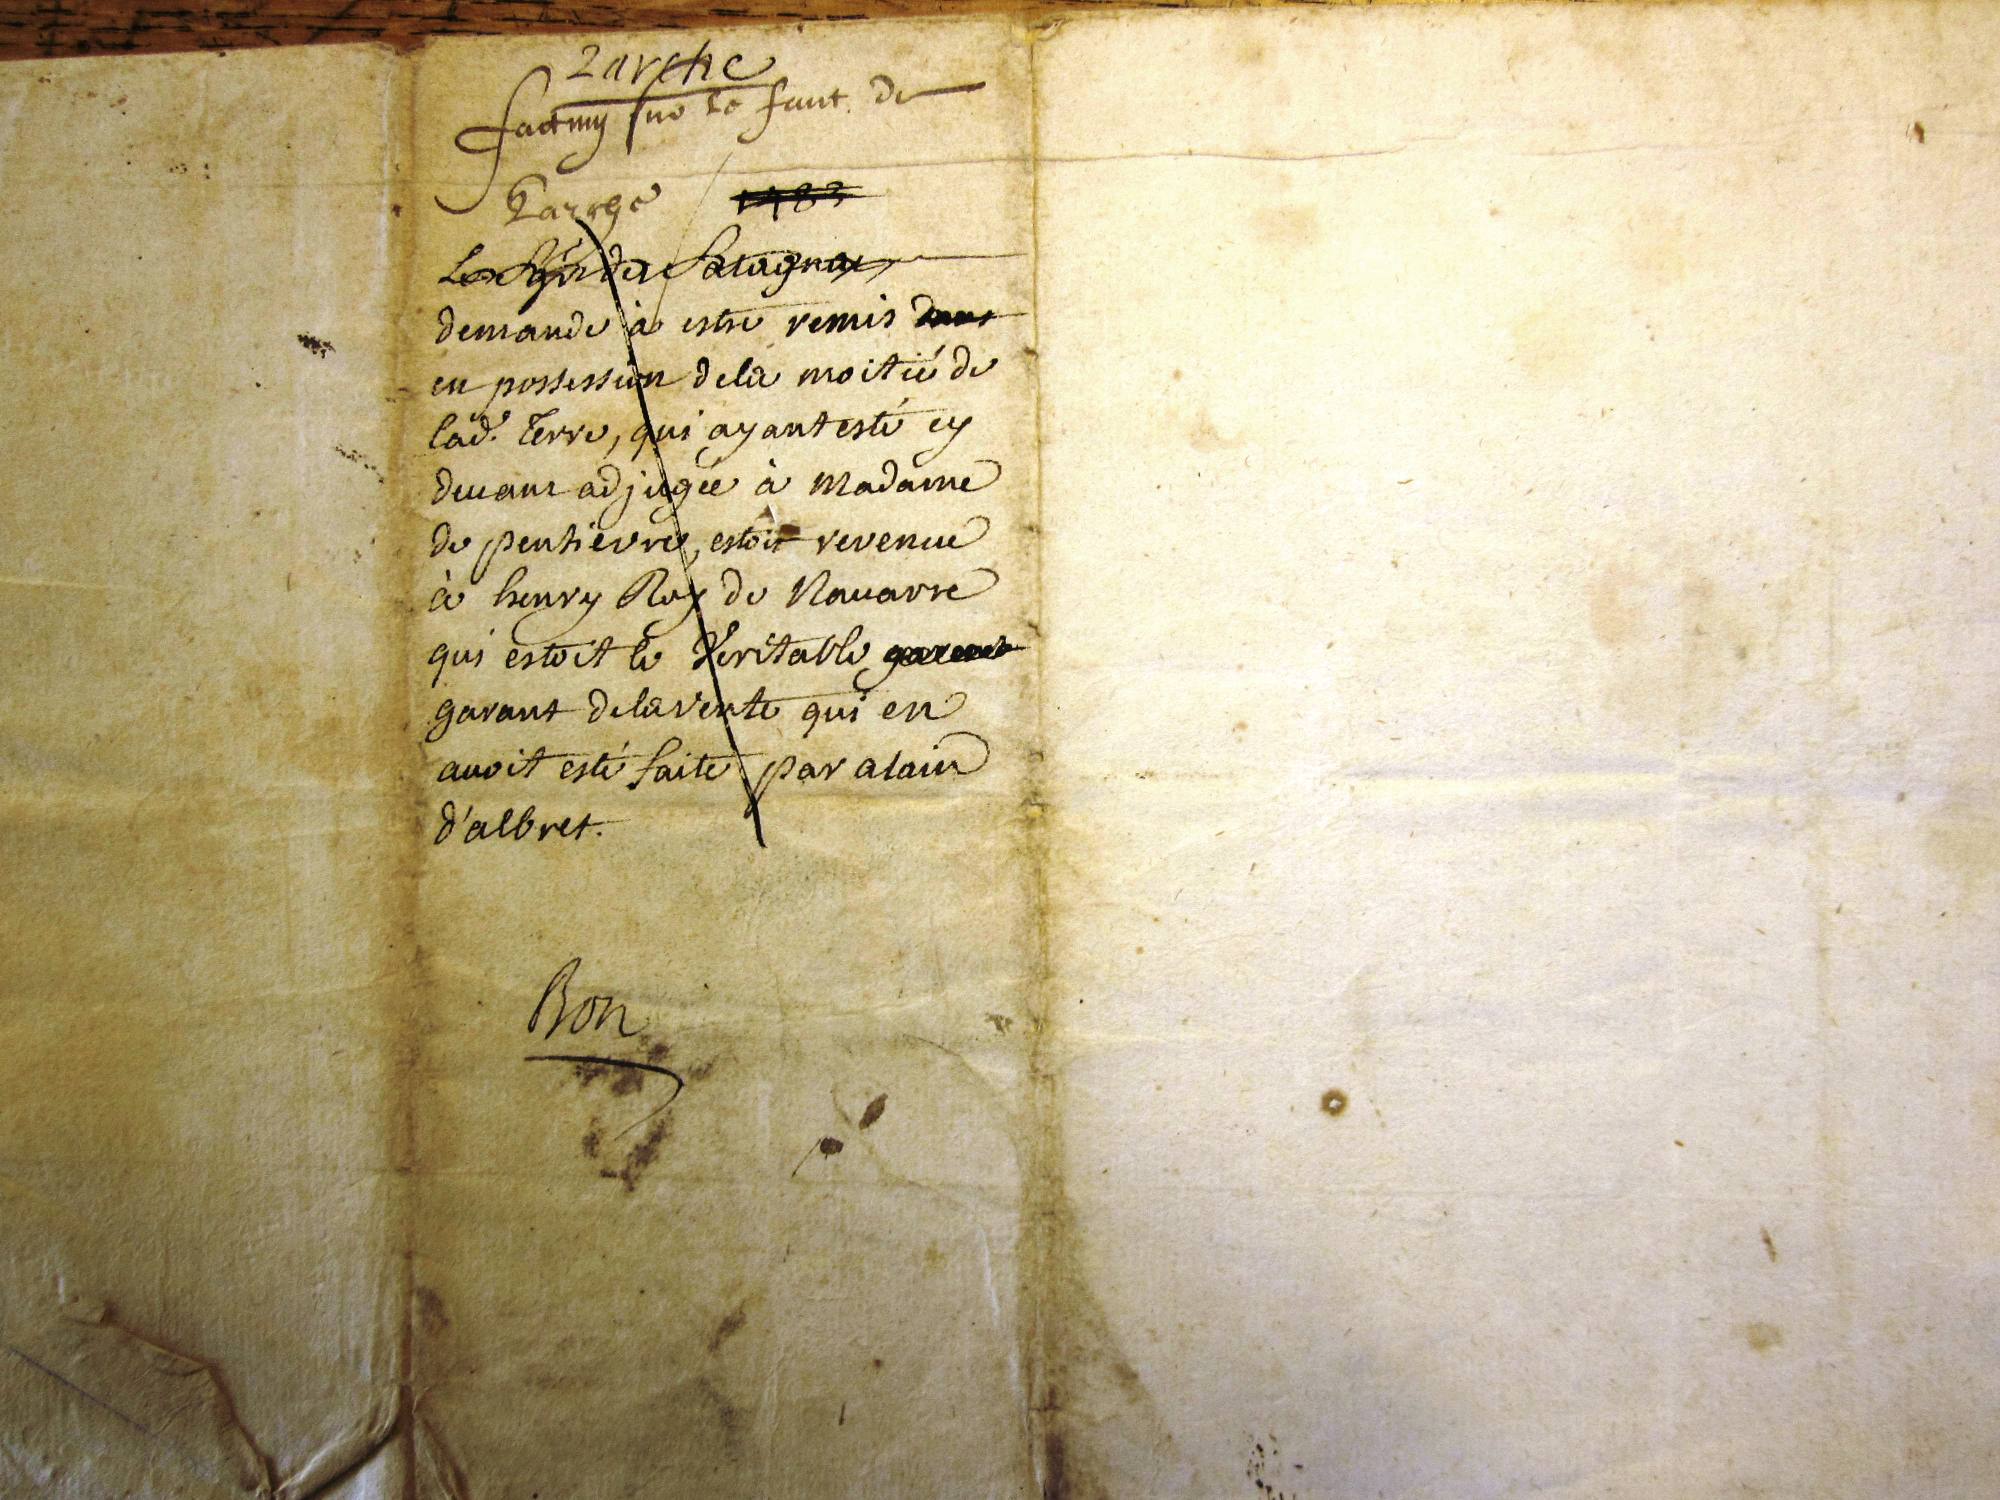 Larche
factum sur le fait de
Larche 1483
demande à estre remis dans
en possession dela moitié de
lad. Terre, qui ayant esté cy
deuant adjugée à Madame
de penthievre, estoit revenue
à henry Roy de Nauarre
qui estoit le Veritable garent
garant dela vente qui en
auoit esté faite par alain
d'albret.
Bon